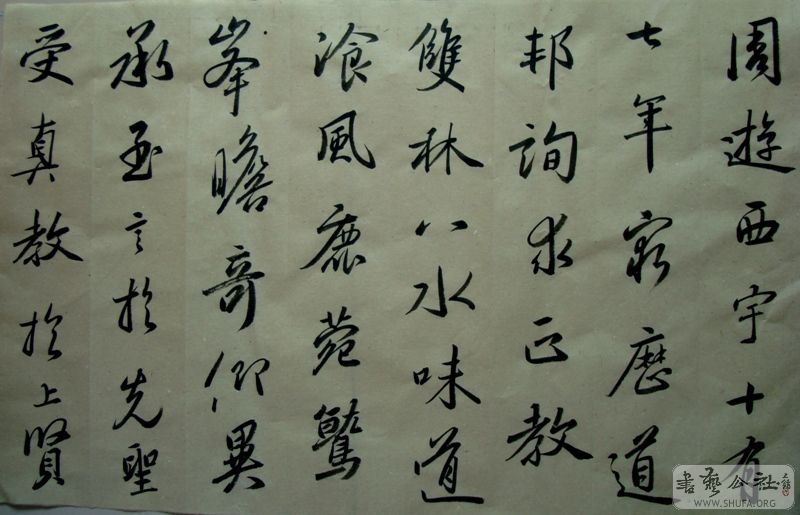 周遊西宇十有
七年窮歷道
邦詢求正教
雙林八水味道
飡風鹿菀鷲
峯瞻奇仰異
承至言於先聖
受真教於上賢
書藝公社
WWW.SHUFA.ORG